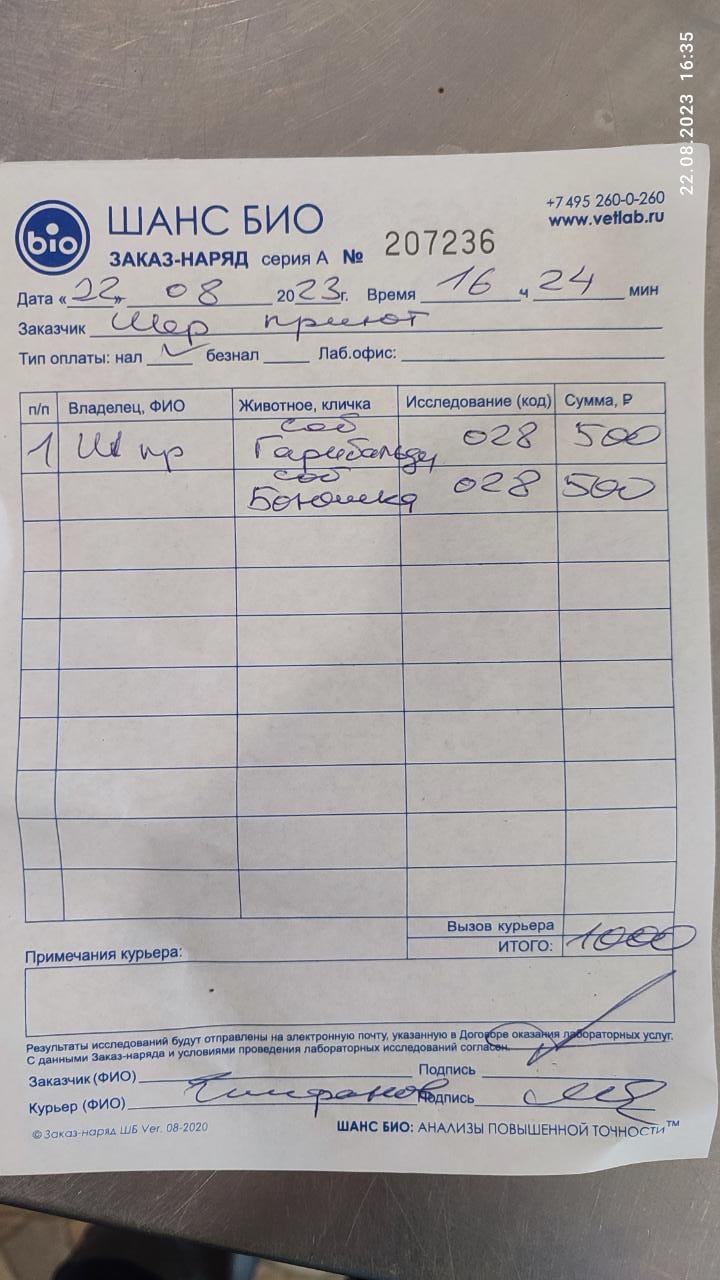 22.08.2023 16:35
bio
ШАНС БИО
+7 495 260-0-260
www.vetlab.ru
ЗАКАЗ-НАРЯД серия А № 207236
Дата «22» 08 2023г. Время 16 ч 24 мин
Заказчик Шер приют
Тип оплаты: нал ✓ безнал Лаб.офис:
п/п Владелец, ФИО Животное, кличка Исследование (код) Сумма, ₽
1 Ш пр соб Гарибальди 028 500
соб Боюшка 028 500
Вызов курьера
ИТОГО: 1000
Примечания курьера:
Результаты исследований будут отправлены на электронную почту, указанную в Договоре оказания лабораторных услуг.
С данными Заказ-наряда и условиями проведения лабораторных исследований согласен.
Заказчик (ФИО) Подпись
Курьер (ФИО) Подпись
© Заказ-наряд ШБ Ver. 08-2020
ШАНС БИО: АНАЛИЗЫ ПОВЫШЕННОЙ ТОЧНОСТИ™